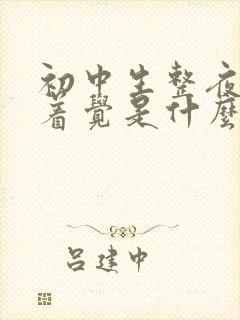 初中生整夜
着覺是什麼
吕建中